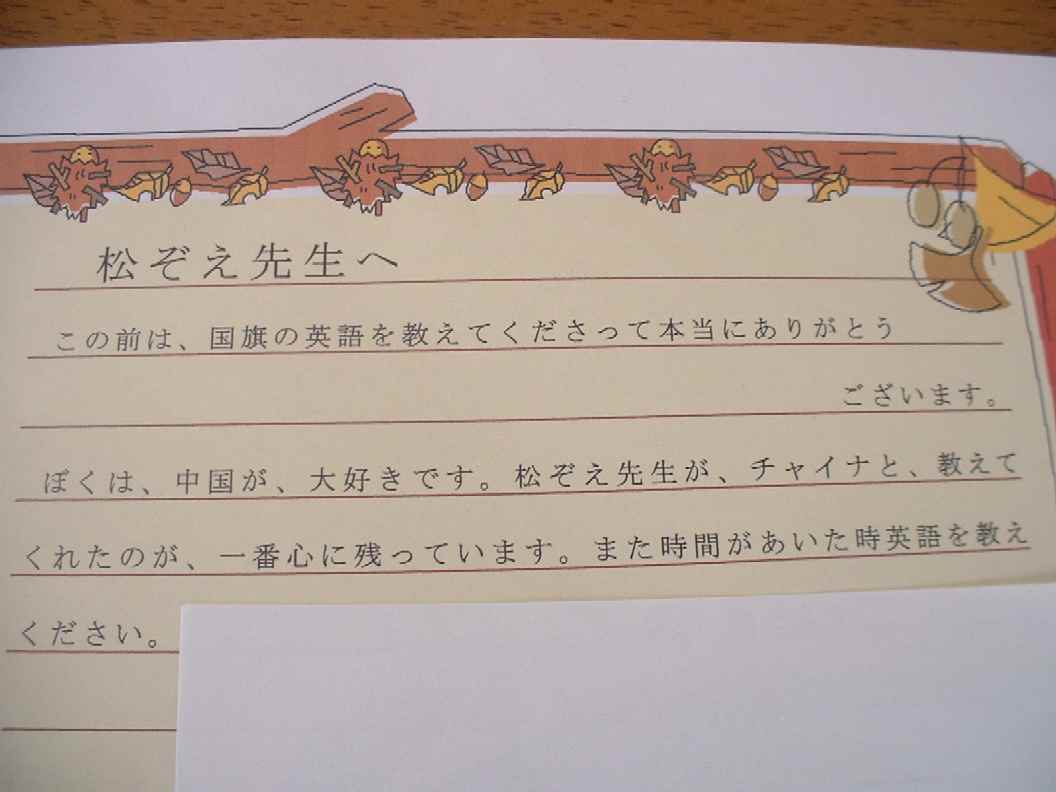 松ぞえ先生へ
この前は、国旗の英語を教えてくださって本当にありがとう
ございます。
ぼくは、中国が、大好きです。松ぞえ先生が、チャイナと、教えて
くれたのが、一番心に残っています。また時間があいた時英語を教え
ください。